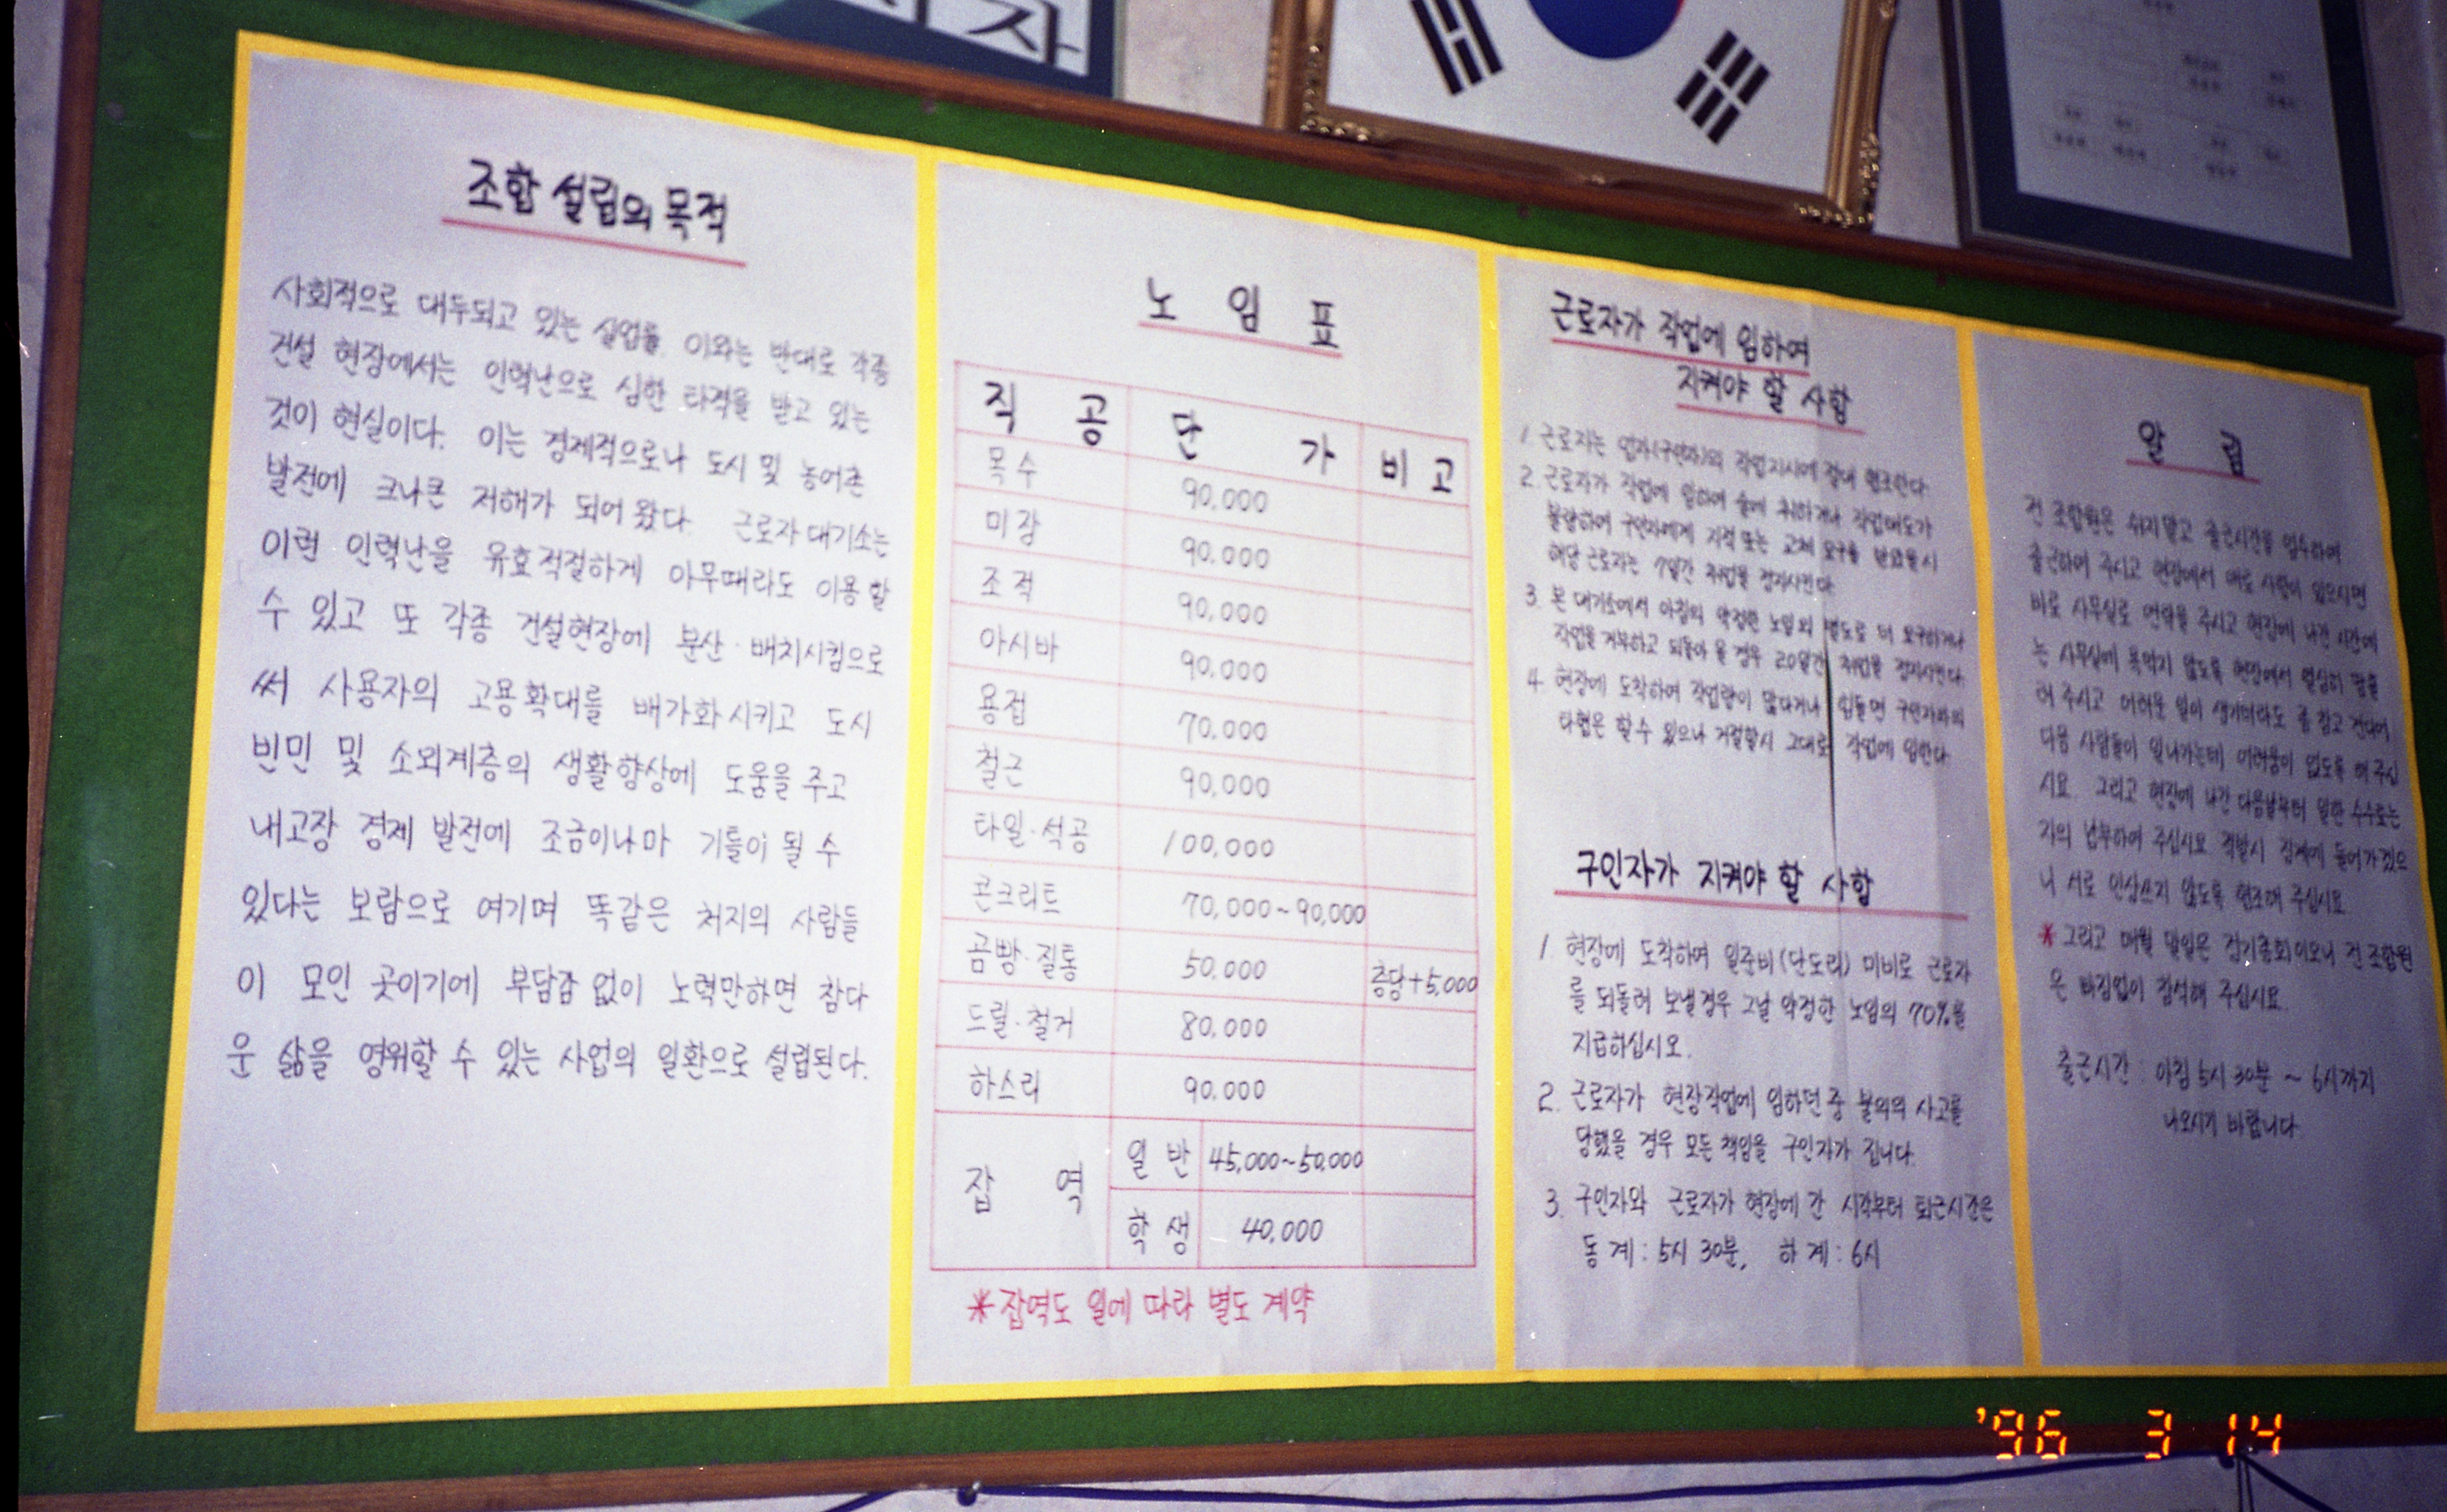 자
조합 설립의 목적
사회적으로 대두되고 있는 실업률, 이와는 반대로 각종
건설 현장에서는 인력난으로 심한 타격을 받고 있는
것이 현실이다. 이는 경제적으로나 도시 및 농어촌
발전에 크나큰 저해가 되어 왔다. 근로자 대기소는
이런 인력난을 유효적절하게 아무때라도 이용 할
수 있고 또 각종 건설현장에 분산·배치시킴으로
써 사용자의 고용확대를 배가화시키고 도시
빈민 및 소외계층의 생활향상에 도움을 주고
내고장 경제 발전에 조금이나마 기틀이 될 수
있다는 보람으로 여기며 똑같은 처지의 사람들
이 모인 곳이기에 부담감 없이 노력만하면 참다
운 삶을 영위할 수 있는 사업의 일환으로 설립된다.
노 임 표
직 공 단 가 비 고
목수 90,000
미장 90,000
조적 90,000
아시바 90,000
용접 70,000
철근 90,000
타일·석공 100,000
콘크리트 70,000~90,000
곰빵·질통 50,000 층당+5,000
드릴·철거 80,000
하스리 90,000
잡 역 일 반 45,000~50,000
학 생 40,000
*잡역도 일에 따라 별도 계약
근로자가 작업에 임하여
지켜야 할 사항
1. 근로자는 업자(구인자)의 작업지시에 절대 협조한다.
2. 근로자가 작업에 임하여 술에 취하거나 작업태도가
불량하여 구인자에게 지적 또는 교체 요구를 받았을시
해당 근로자는 7일간 취업을 정지시킨다.
3. 본 대기소에서 아침의 약정한 노임외 별도로 더 요구하거나
작업을 거부하고 되돌아 올 경우 20일간 취업을 정지시킨다.
4. 현장에 도착하여 작업량이 많다거나 힘들면 구인자와의
타협은 할수 있으나 거절할시 그대로 작업에 임한다.
구인자가 지켜야 할 사항
1. 현장에 도착하여 일준비(단도리) 미비로 근로자
를 되돌려 보낼경우 그날 약정한 노임의 70%를
지급하십시오.
2. 근로자가 현장작업에 임하던 중 불의의 사고를
당했을 경우 모든 책임을 구인자가 집니다.
3. 구인자와 근로자가 현장에 간 시각부터 퇴근시간은
동계: 5시 30분, 하계: 6시
알 림
전 조합원은 쉬지말고 출근시간을 엄수하여
출근하여 주시고 현장에서 데로 사람이 있으시면
바로 사무실로 연락을 주시고 현장에 나간 시간에
는 사무실에 욕먹지 않도록 현장에서 열심히 일을
해 주시고 어려운 일이 생기더라도 좀 참고 견디어
다음 사람들이 일나가는데 어려움이 없도록 해 주십
시요. 그리고 현장에 나간 다음날부터 일한 수수료는
자의 납부하여 주십시요 적발시 징계에 들어가겠으
니 서로 인상쓰지 않도록 협조해 주십시요.
*그리고 매월 말일은 정기총회이오니 전 조합원
은 빠짐없이 참석해 주십시요.
출근시간: 아침 5시 30분 ~ 6시까지
나오시기 바랍니다.
'96 3 14